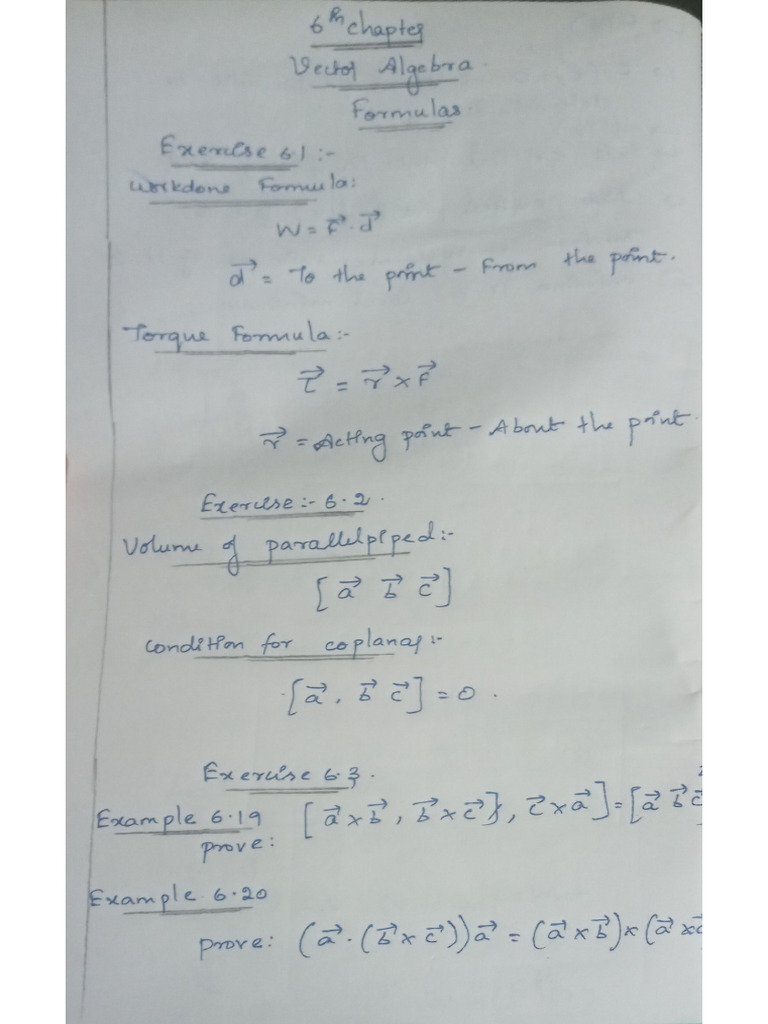 6th chapter
Vector Algebra.
Formulas.
Exercise 6.1 :-
Workdone Formula:
W = F⃗ . d⃗
d⃗ = To the point - From the point.
Torque Formula:-
τ⃗ = r⃗ × F⃗
r⃗ = Acting point - About the point.
Exercise:- 6.2.
Volume of parallelpiped:-
[a⃗ b⃗ c⃗]
Condition for coplanar:-
[a⃗, b⃗ c⃗] = 0.
Exercise 6.3.
Example 6.19 [a⃗ × b⃗, b⃗ × c⃗}, c⃗ × a⃗] = [a⃗ b⃗ c⃗
prove:
Example 6.20
prove: (a⃗ . (b⃗ × c⃗)) a⃗ = (a⃗ × b⃗) × (a⃗ × c⃗